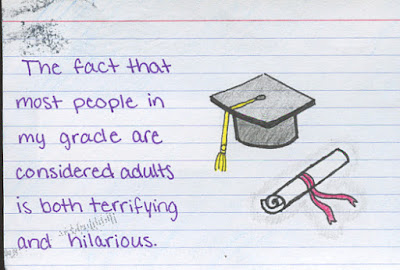 The fact that
most people in
my grade are
considered adults
is both terrifying
and hilarious.